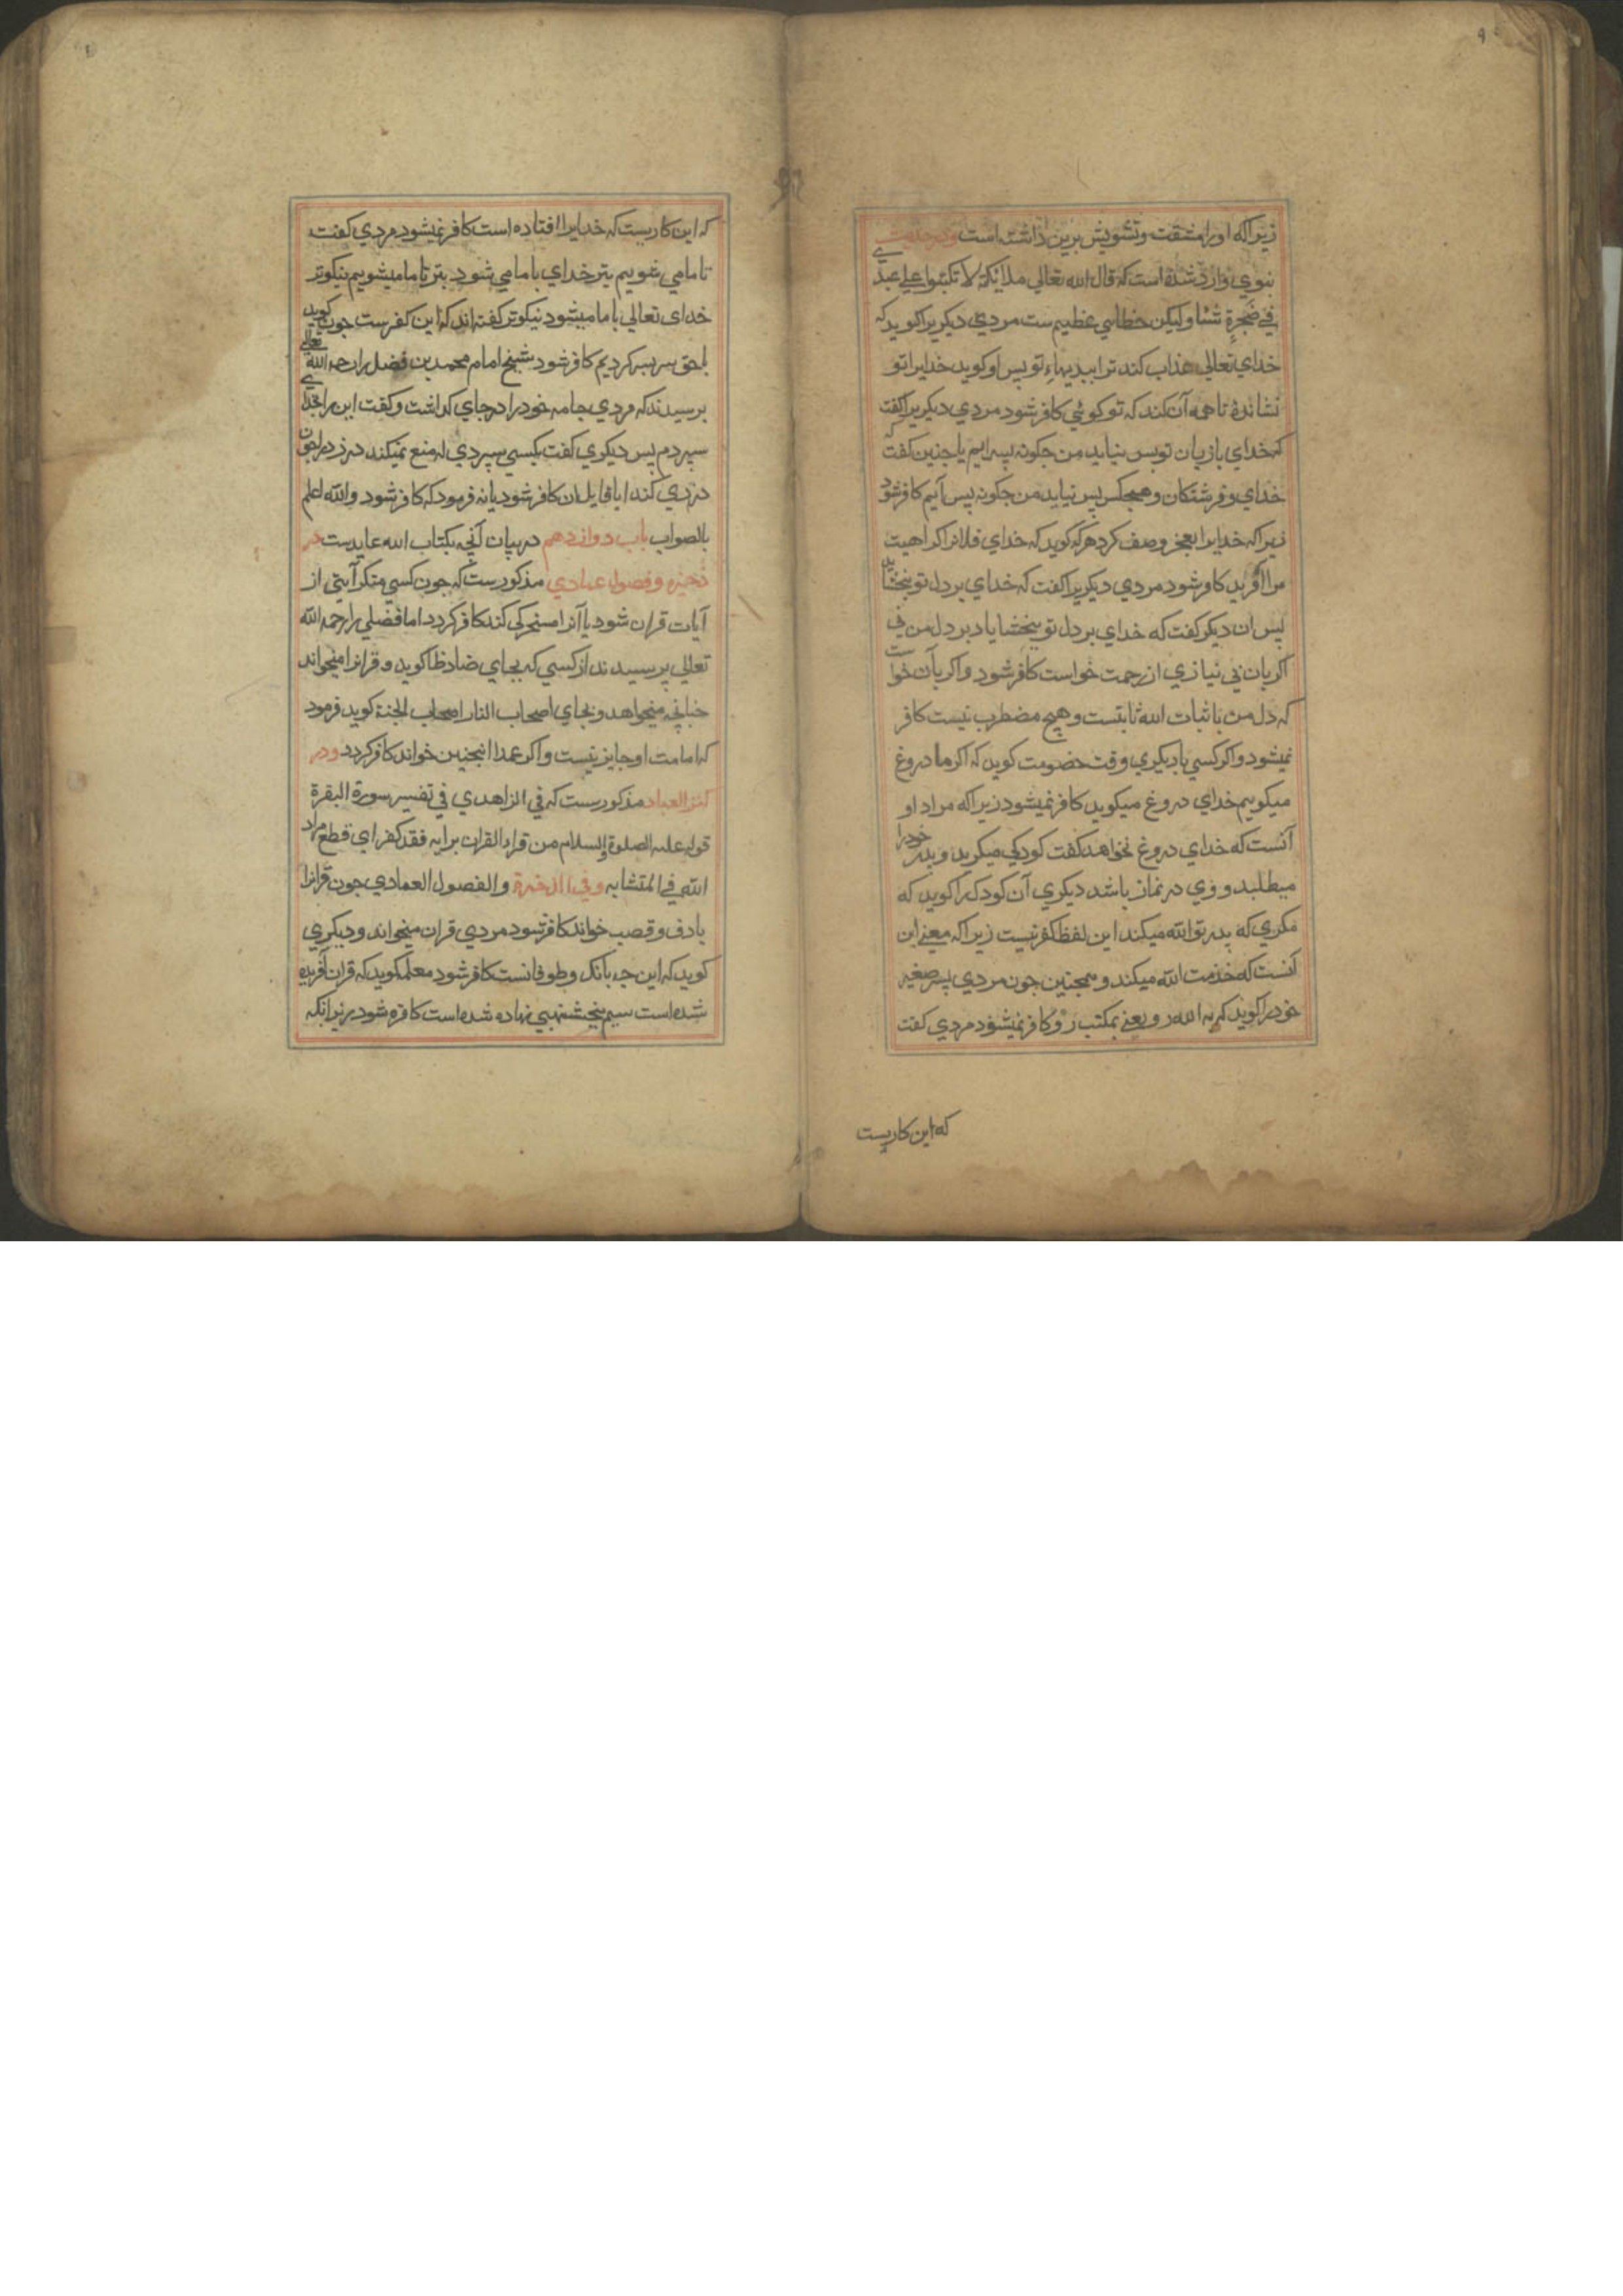 زیراکه اورا مشقت وتشویش برین داشته است ودر حدیث
نبوي وارد شده است که قال الله تعالي ملایکة لا تکتبوا علي عبدي
في ضجرة شئا ولیکن خطایي عظیم ست مردي دیکریرا کوید که
خداي تعالي عذاب کند ترا ببدیهاء تو پس او کوید خدایرا تو
نشاندهٔ تا همه آن کند که تو کوئي کافر شود مردي دیکریرا کفت
که خداي با زبان تو بس نیاید من چکونه بس ایم یا چنین کفت که
خداي وفرشتکان وهیچکس بس نیاید من چکونه بس آیم کافر شود
زیراکه خدایرا بعجز وصف کرد هرکه کوید که خداي فلانرا کراهیت
مرا آفرید کافر شود مردي دیکریرا کفت که خداي بر دل تو ببخشاید
پس ان دیکر کفت که خداي بر دل تو ببخشایاد بر دل من ني
اکر بان بي نیازي از رحمت خواست کافر شود واکر بان خواست
که دل من باثبات الله ثابتست وهیچ مضطرب نیست کافر
نمیشود واکر کسي با دیکري وقت خصومت کوید که اکر ما دروغ
میکوییم خداي دروغ میکوید کافر نمیشود زیراکه مراد او
آنست که خداي دروغ نخواهد کفت کودکي میکرید وپدر خودرا
میطلبد ووي در نماز باشد دیکري آن کودکرا کوید که
مکري که پدر تو الله میکند این لفظ کفر نیست زیراکه معني این
آنست که خدمت الله میکند وهمچنین چون مردي پسر صغیر
خودرا کوید که به الله رو یعني بمکتب رو کافر نمیشود مردي کفت
که این کاریست
که این کاریست که خدایرا افتاده است کافر نمیشود مردي کفت
تا ما مي شویم بتر خداي با ما مي شود بتر تا ما میشویم نیکوتر
خداي تعالي با ما میشود نیکوتر کفته اند که این کفرست چون کوید
با حق سر بسر کردیم کافر شود شیخ امام محمد بن فضل را رحمه الله تعالي
پرسیدند که مردي جامه خودرا در جاي کداشت وکفت این را بخداي
سپردم پس دیکري کفت بکسي سپردي که منع نمیکند دزد را چون
دزدي کند ایا قایل ان کافر شود یا نه فرمود که کافر شود والله اعلم
بالصواب باب دوازدهم در بیان آنچه بکتاب الله عایدست در
ذخیره وفصول عمادي مذکورست که چون کسي منکر آیتي از
آیات قران شود یا آنرا سخرکي کند کافر کردد اما فضلي را رحمه الله
تعالي پرسیدند از کسي که بجاي ضاد ظا کوید وقرانرا میخواند
چنانچه میخواهد وبجاي اصحاب النار اصحاب الجنة کوید فرمود
که امامت او جایز نیست واکر عمدا اینچنین خواند کافر کردد ودر
کنز العباد مذکورست که في الزاهدي في تفسیر سورة البقرة
قوله علیه الصلوة والسلام من قراء القران برایه فقد کفر اي قطع مراد
الله في المتشابه وفي الذخیرة والفصول العمادي چون قرانرا
با دف وقصب خواند کافر شود مردي قران میخواند ودیکري
کوید که این چه بانک وطوفانست کافر شود معلم کوید که قران آفریده
شده است سیم پنجشنبهي نهاده شده است کافر شود زیرانکه